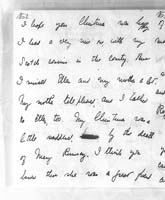 I hope your Christmas was happy
I had a very nice one with my
cousins in the country. Now
I missed Ellen and my mother a lot
My mother telephoned, and I talked
to Ellen, too. My Christmas was a
little saddened by the death
of Mary Rumsey. I think you
knew that she was a great friend